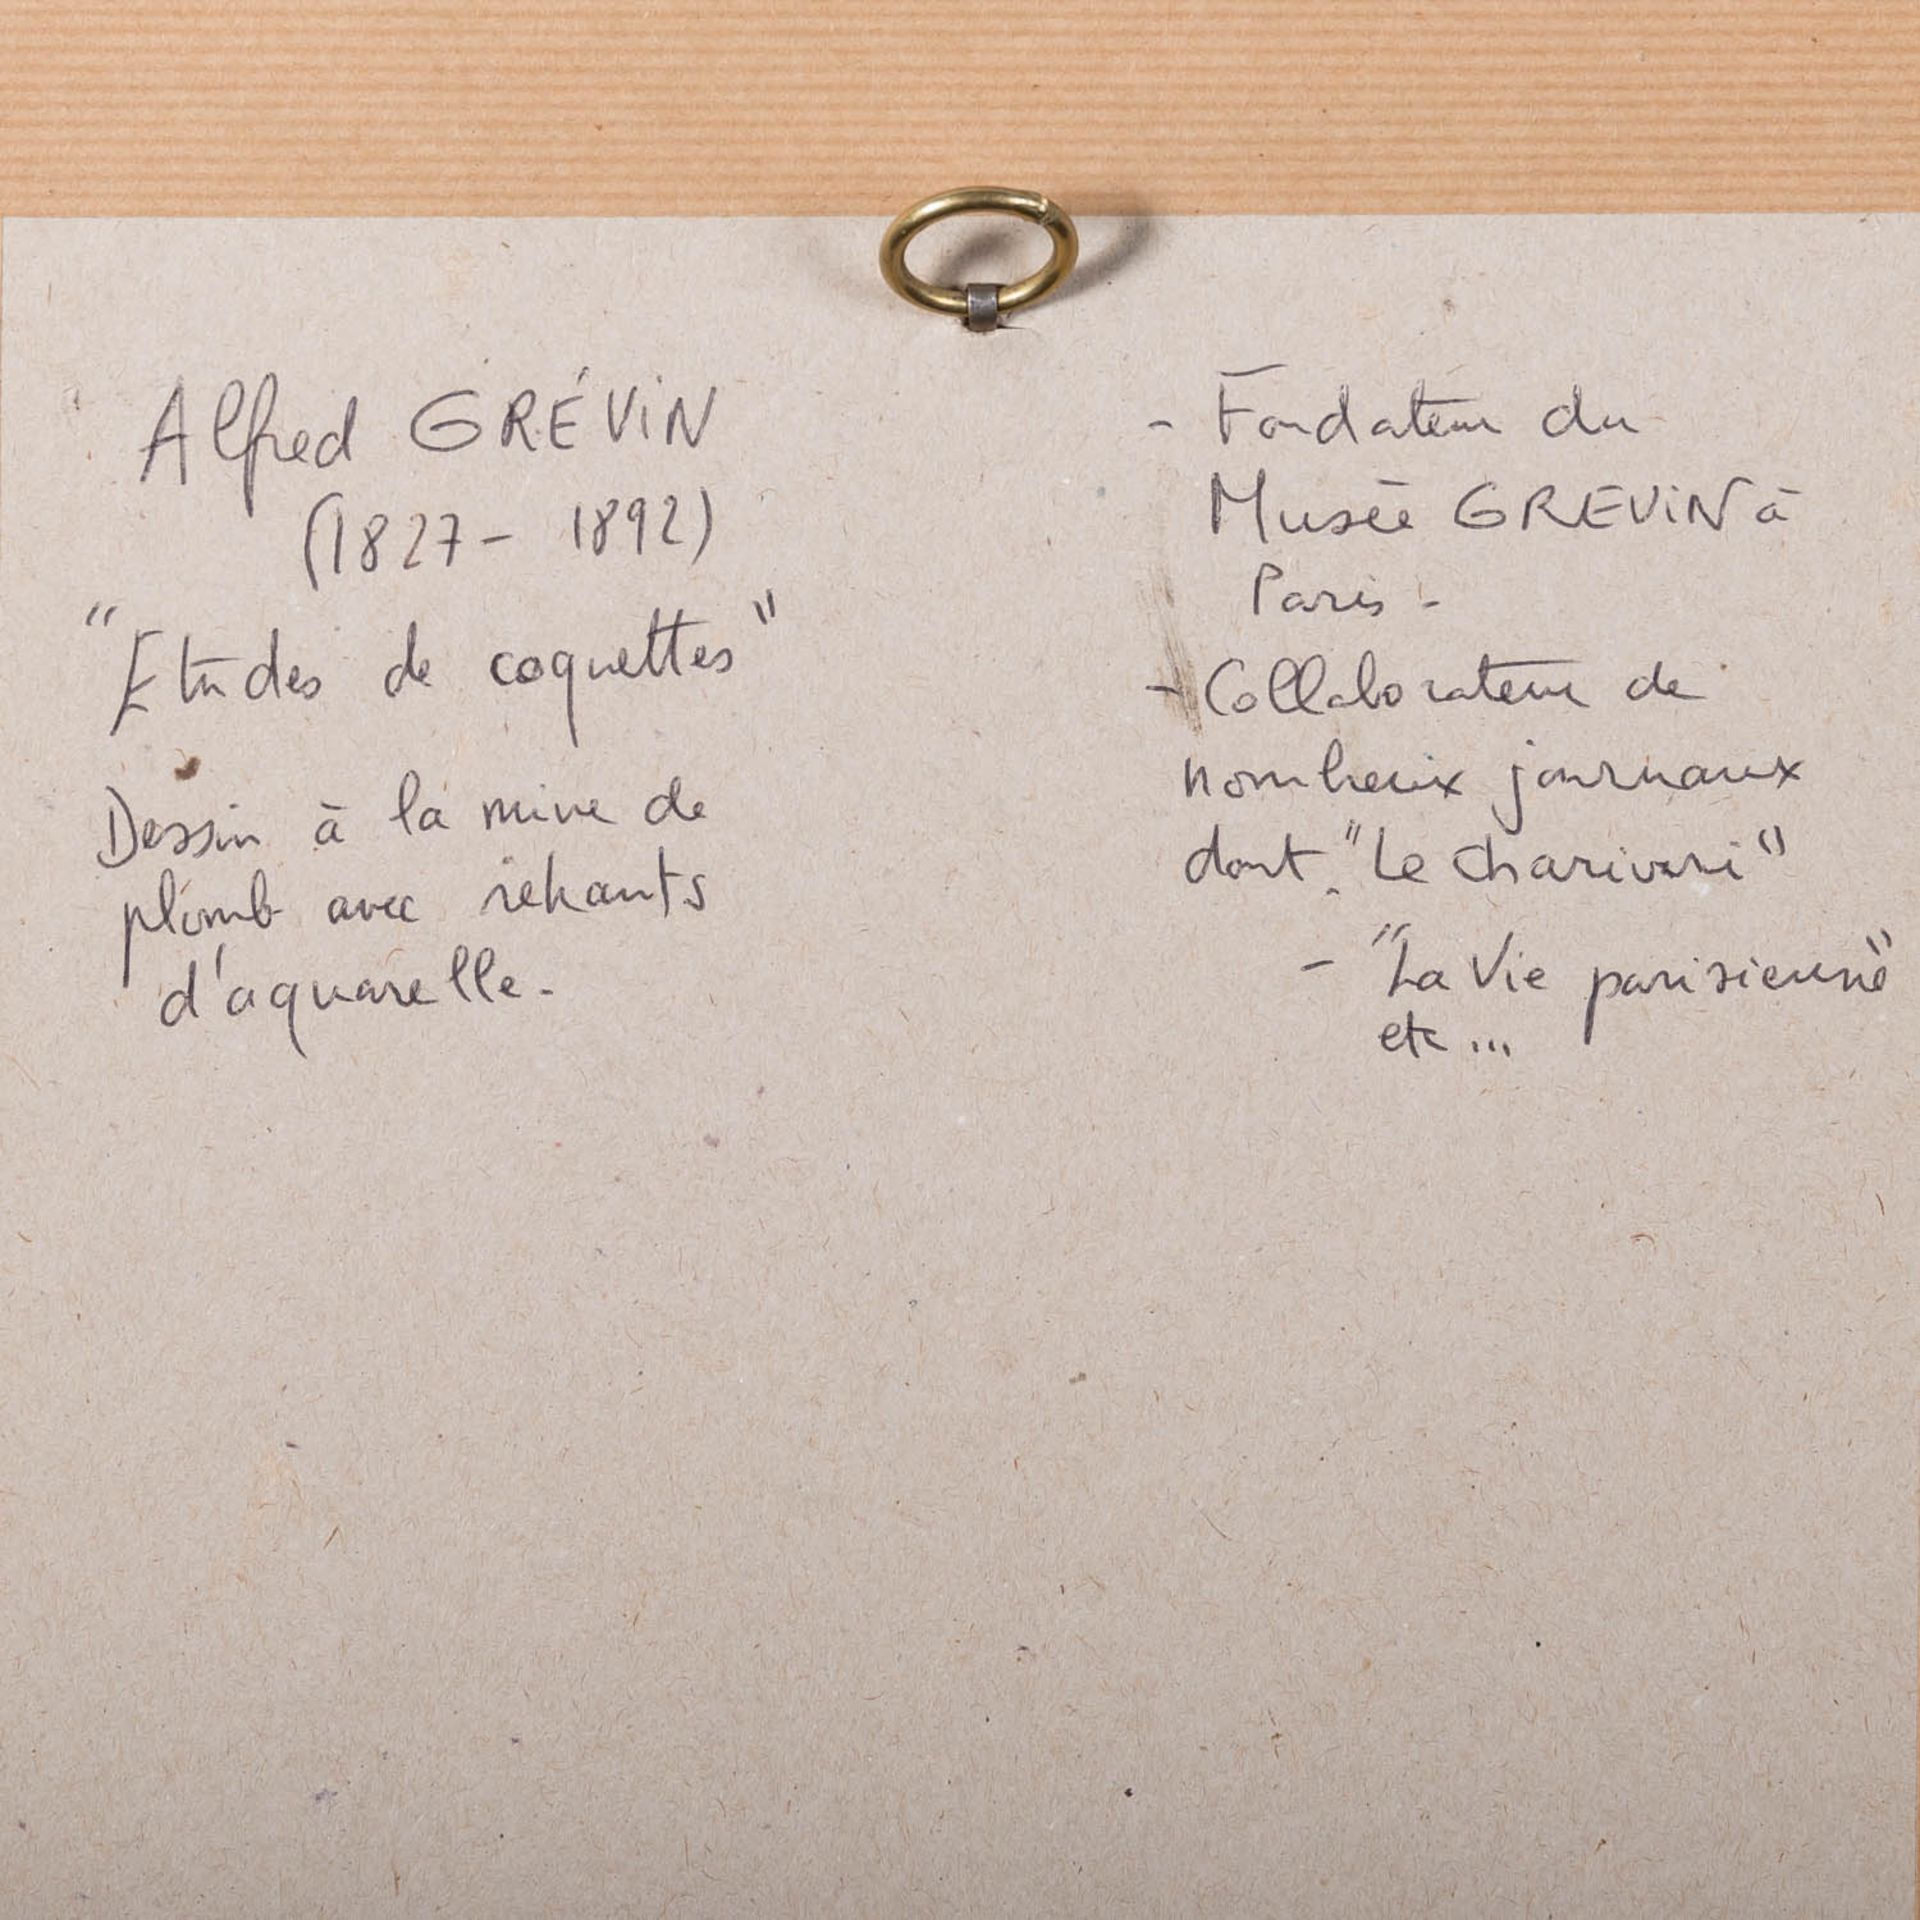 Alfred GRÉViN
(1827- 1892)
"Etudes de coquettes"
Dessin à la mine de
plomb avec rehauts
d'aquarelle.
- Fondateur du
Musée GREViN à
Paris -
- Collaborateur de
nombreux journaux
dont - "Le Charivari"
- "La Vie parisienne"
etc...